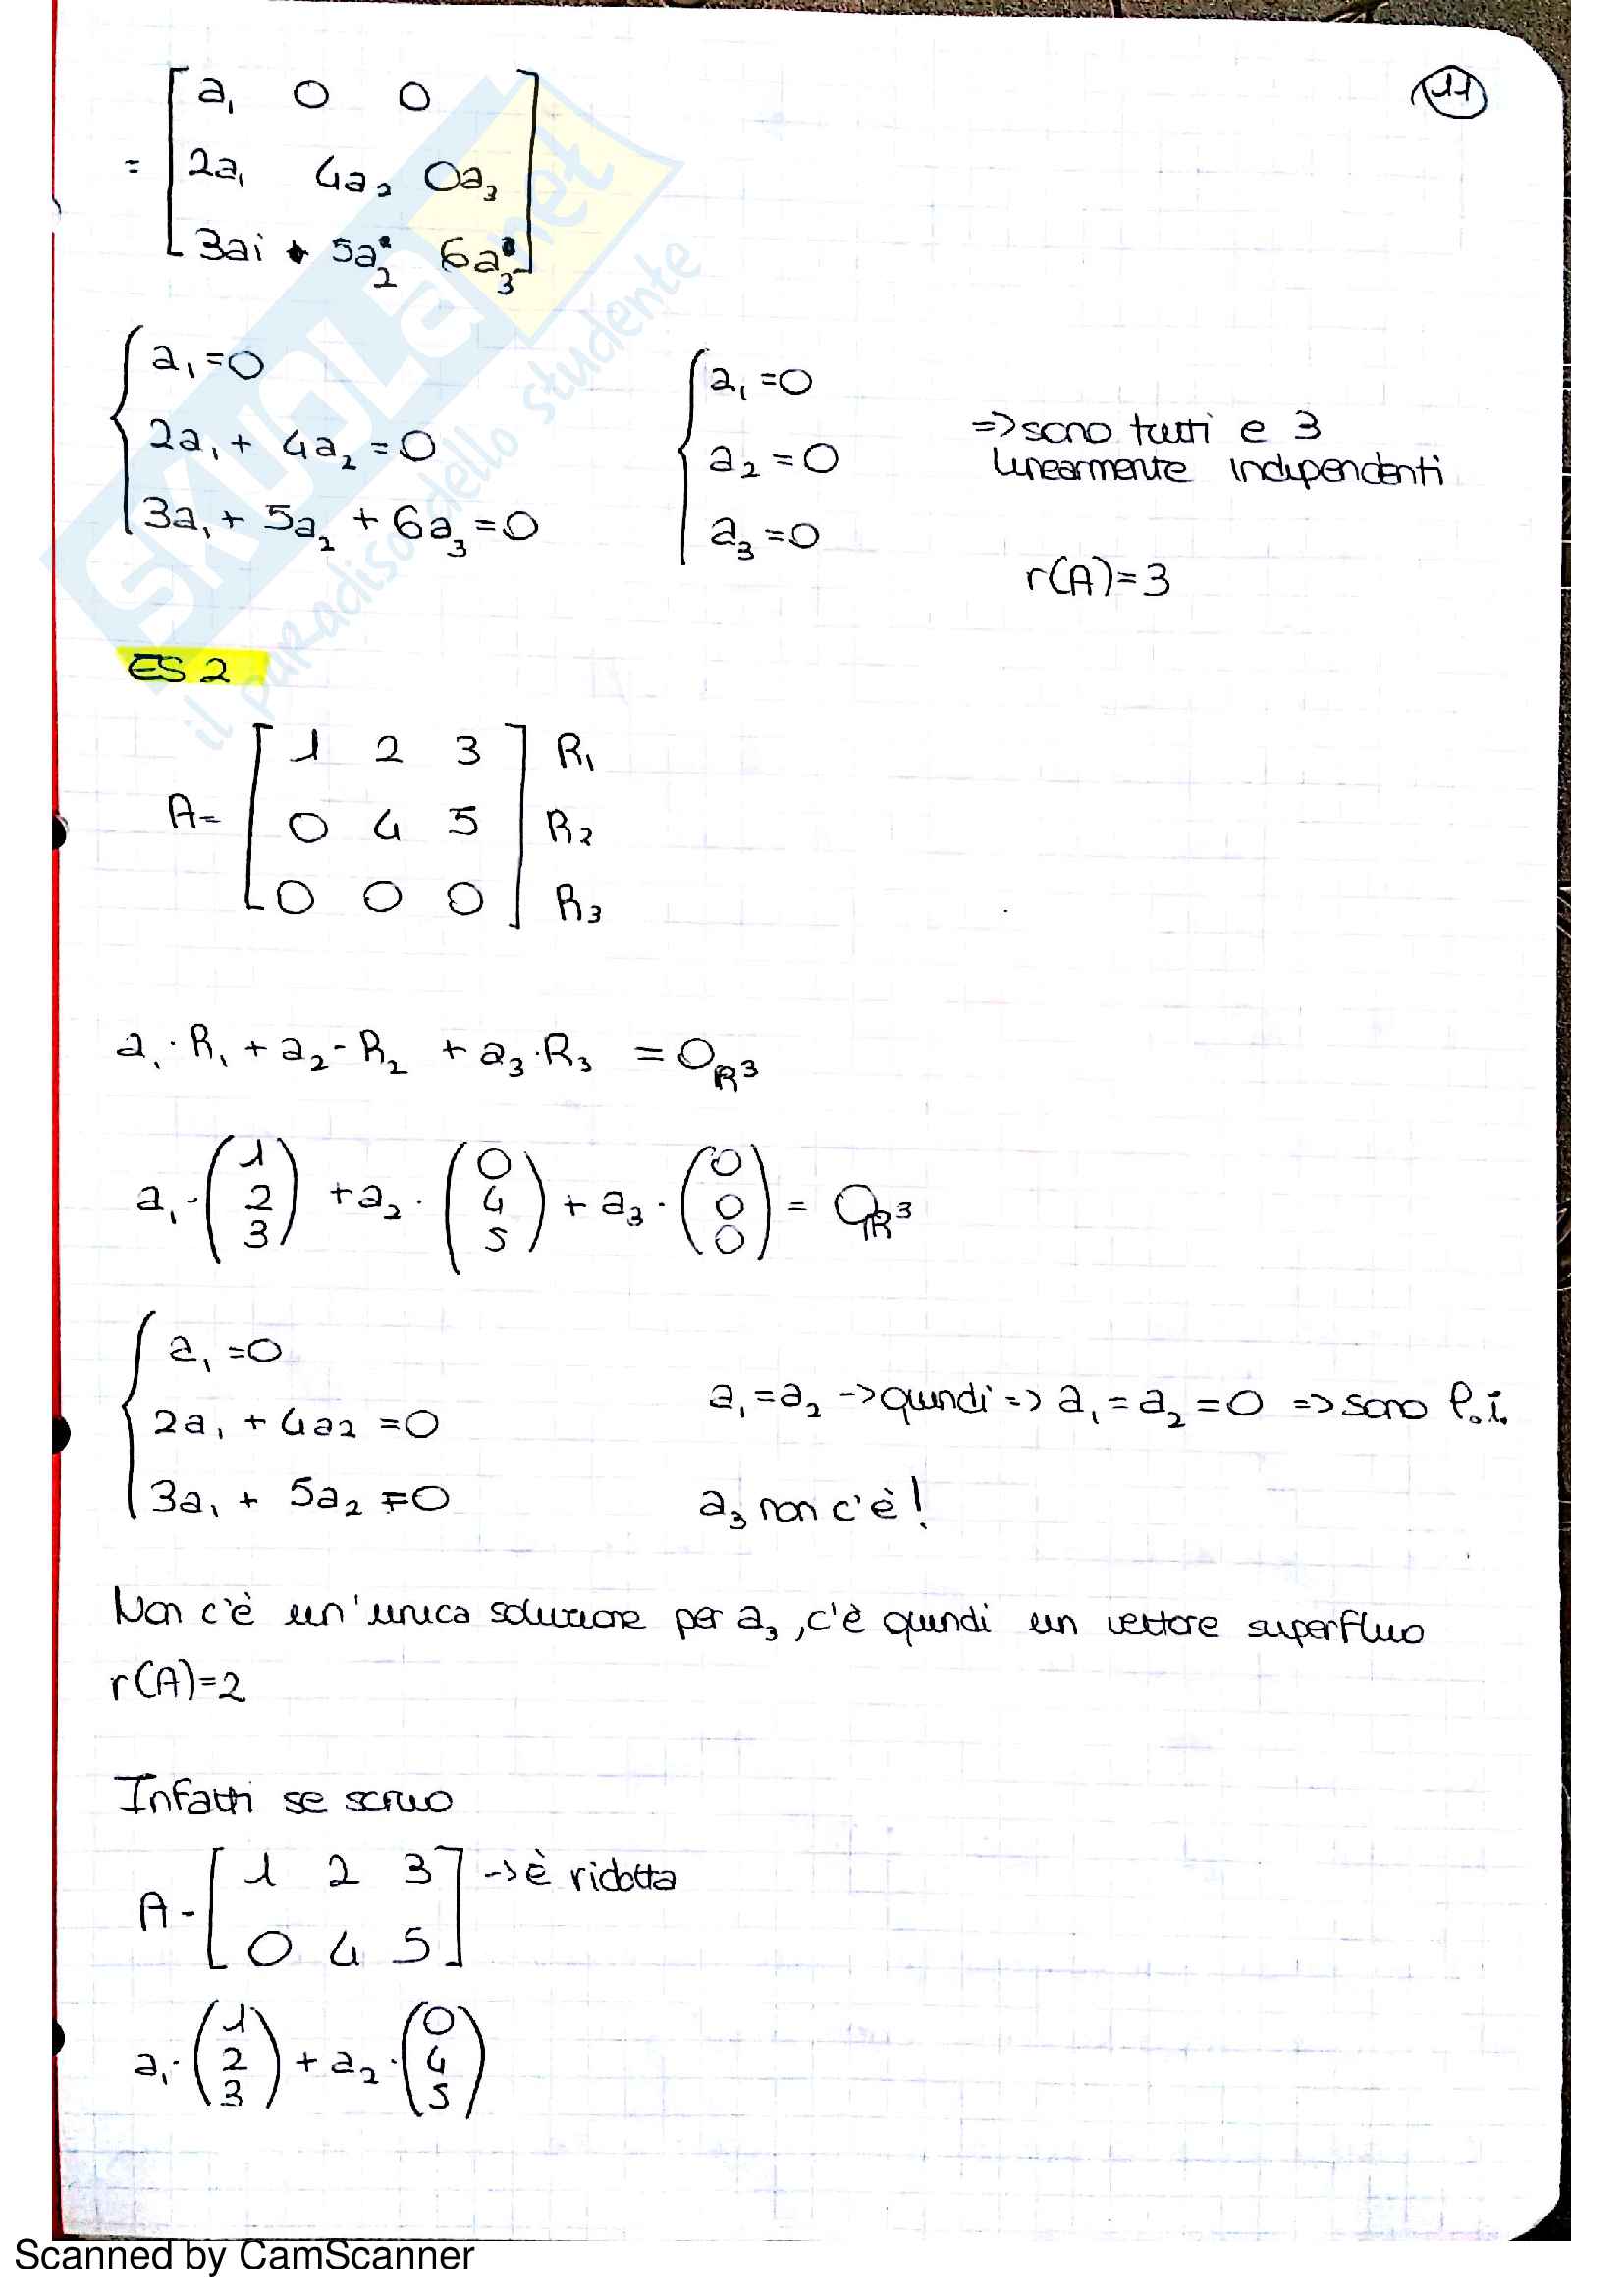 11
= [ a₁ 0 0
2a₁ 4a₂ 0a₃
3ai + 5a₂ 6a₃ ]
{ a₁=0
2a₁+ 4a₂=0
3a₁+ 5a₂ +6a₃=0
{ a₁=0
a₂=0
a₃=0
=> sono tutti e 3
linearmente indipendenti
r(A)=3
ES 2
A= [ 1 2 3 ] R₁
[ 0 4 5 ] R₂
[ 0 0 0 ] R₃
a₁·R₁+a₂-R₂ +a₃·R₃ =0ℝ³
a₁·(1 2 3) +a₂·(0 4 5)+ a₃·(0 0 0)= 0ℝ³
{ a₁=0
2a₁+4a2=0
3a₁+ 5a₂=0
a₁=a₂ ->quindi=> a₁=a₂=0 =>sono l.i.
a₃ non c'è!
Non c'è un'unica soluzione per a₃, c'è quindi un vettore superfluo
r(A)=2
Infatti se scrivo
A-[ 1 2 3 ] ->è ridotta
[ 0 4 5 ]
a₁·(1 2 3)+a₂·(0 4 5)
SKUOLA.net
il paradiso dello studente
Scanned by CamScanner